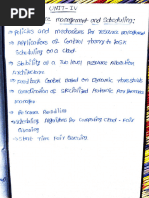 UNIT-IV
management and Scheduling:
→ Policies and mechanisms for resource
→ Applications of Control theory to task
Scheduling on a cloud
→ Stability of a two level resource
architecture
→ feedback control based on dynamic thresholds
→ coordination of
managers
→ Resource Bundling
→ scheduling algorithm for computing cloud - Fair
Queuing
→ Start Time Fair Queuing